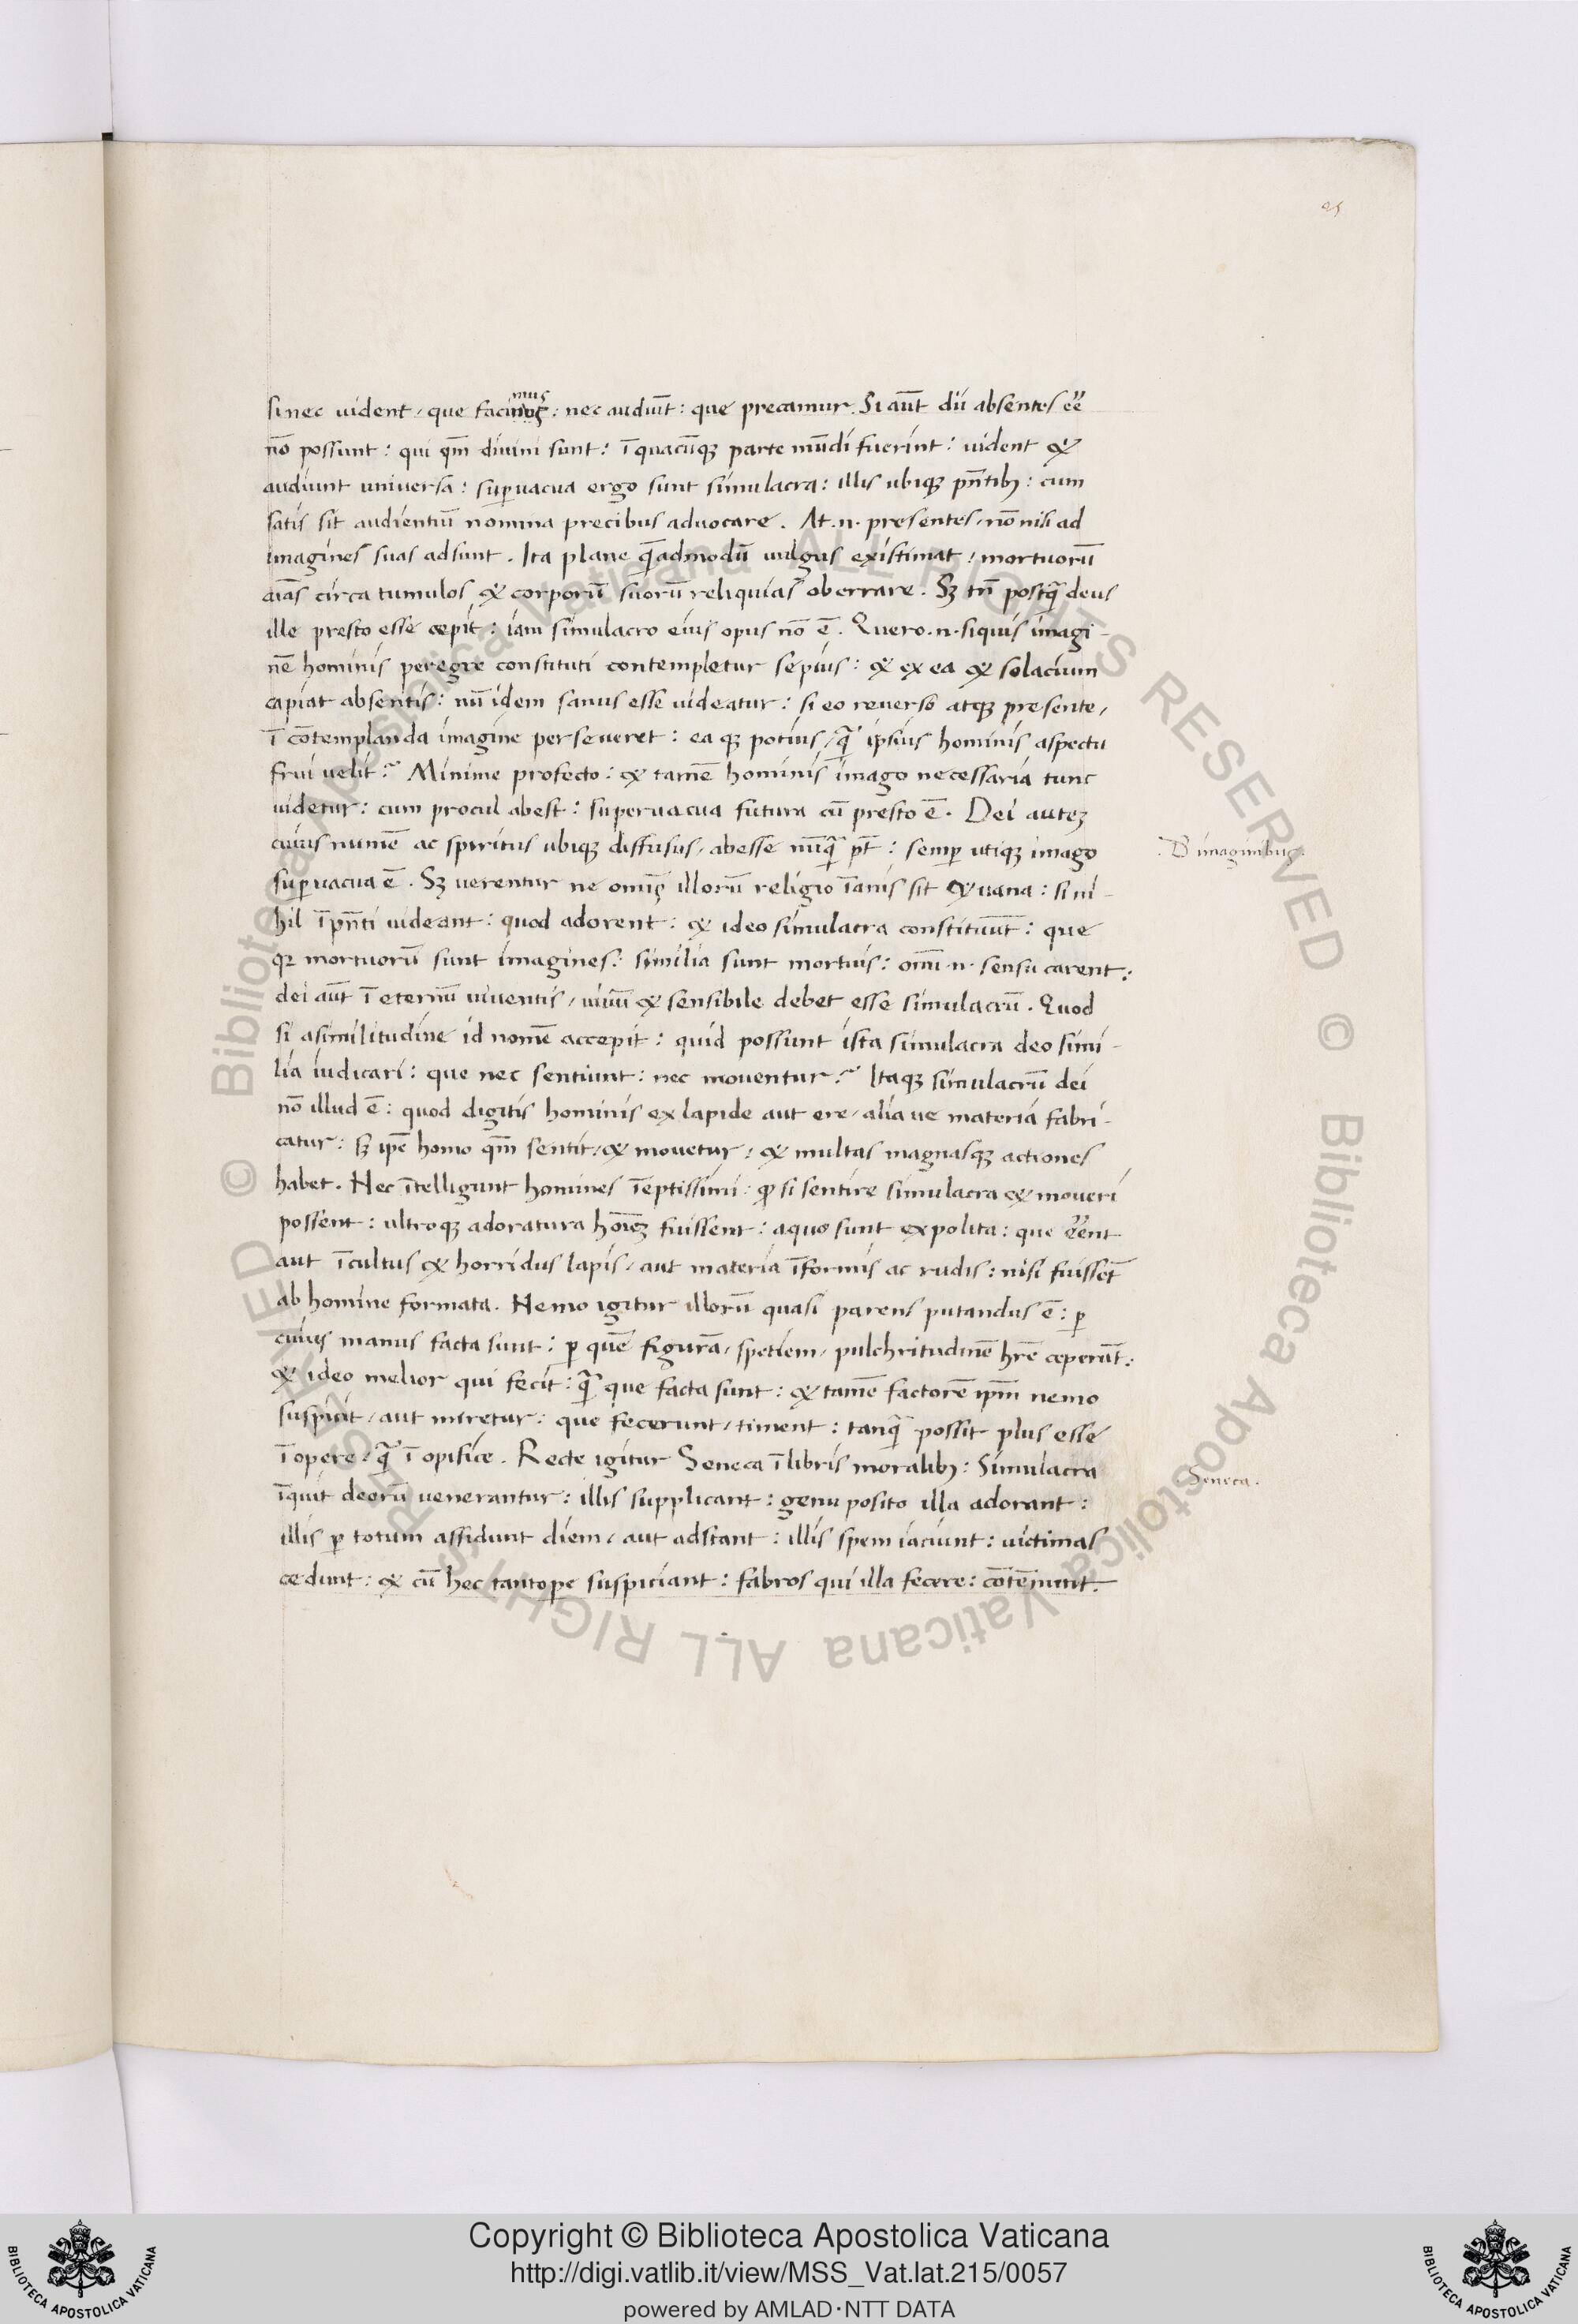 25
si nec uident / que facimus : nec audiūt : que precamur . Si aūt dii absentes eē
nō possunt : qui qm̄ diuini sunt : ī quacūqꝫ parte mūdi fuerint : uident &
audiunt uniuersa : suꝑuacua ergo sunt simulacra : illis ubiqꝫ pn̄tibꝫ : cum
satis sit audientiū nomina precibus aduocare . At .n. presentes / nō nisi ad
imagines suas adsunt . Ita plane quēadmodū uulgus existimat / mortuorū
aīas circa tumulos & corporū suorū reliquias oberrare . Sꝫ tn̄ postq̄ deus
ille presto esse cepit : iam simulacro eius opus nō ē . Quero .n. siquis imagi-
nē hominis peregre constituti contempletur sepius : & ex ea & solacium
capiat absentis : nū idem sanus esse uideatur : si eo reuerso atqꝫ presente /
ī cōtemplanda imagine perseueret : ea qꝫ potius / q̄ ipsius hominis aspectu
frui uelit ? Minime profecto : & tamē hominis imago necessaria tunc
uidetur : cum procul abest : superuacua futura cū presto ē . Dei auteꝫ
cuius numē ac spiritus ubiqꝫ diffusus / abesse nūq̄ pt̄ : semꝑ utiqꝫ imago
D imaginibus .
suꝑuacua ē . Sꝫ uerentur ne omīs illorū religio īanis sit & uana : si ni-
hil ī pn̄ti uideant : quod adorent : & ideo simulacra constituūt : que
qꝛ mortuorū sunt imagines : similia sunt mortuis : omī .n. sensu carent :
dei aūt ī eternū uiuentis / uiuū & sensibile debet esse simulacrū . Quod
si asimilitudine id nomē accepit : quid possunt ista simulacra deo simi-
lia iudicari : que nec sentiunt : nec mouentur ? Itaqꝫ simulacrū dei
nō illud ē : quod digitis hominis ex lapide aut ere / alia ue materia fabri-
catur : sꝫ ipē homo qm̄ sentit / & mouetur / & multas magnasqꝫ actiones
habet . Nec ītelligunt homines īeptissimi : ꝙ si sentire simulacra & moueri
possent : ultroqꝫ adoratura hoīeꝫ fuissent : aquo sunt expolita : que eēnt
aut īcultus & horridus lapis / aut materia īformis ac rudis : nisi fuissēt
ab homine formata . Nemo igitur illorū quasi parens putandus ē : ꝑ
cuius manus facta sunt : ꝑ quē figurā / spetiem / pulchritudinē hr̄e ceperūt :
& ideo melior qui fecit : q̄ que facta sunt : & tamē factorē ipm̄ nemo
suspicit / aut miretur : que fecerunt / timent : tanq̄ possit plus esse
ī opere / q̄ ī opifice . Recte igitur Seneca ī libris moralibꝫ : Simulacra
Seneca .
īquit deorū uenerantur : illis supplicant : genu posito illa adorant :
illis ꝑ totum assidunt diem / aut adstant : illis spem iaciunt : uictimas
cedunt : & cū hec tantoꝑe suspiciant : fabros qui illa fecere : cōtēnunt .
BIBLIOTECA APOSTOLICA VATICANA
© Biblioteca Apostolica Vaticana ALL RIGHTS RESERVED © Biblioteca Apostolica Vaticana ALL RIGHTS RESERVED
Copyright © Biblioteca Apostolica Vaticana
http://digi.vatlib.it/view/MSS_Vat.lat.215/0057
powered by AMLAD·NTT DATA
BIBLIOTECA APOSTOLICA VATICANA